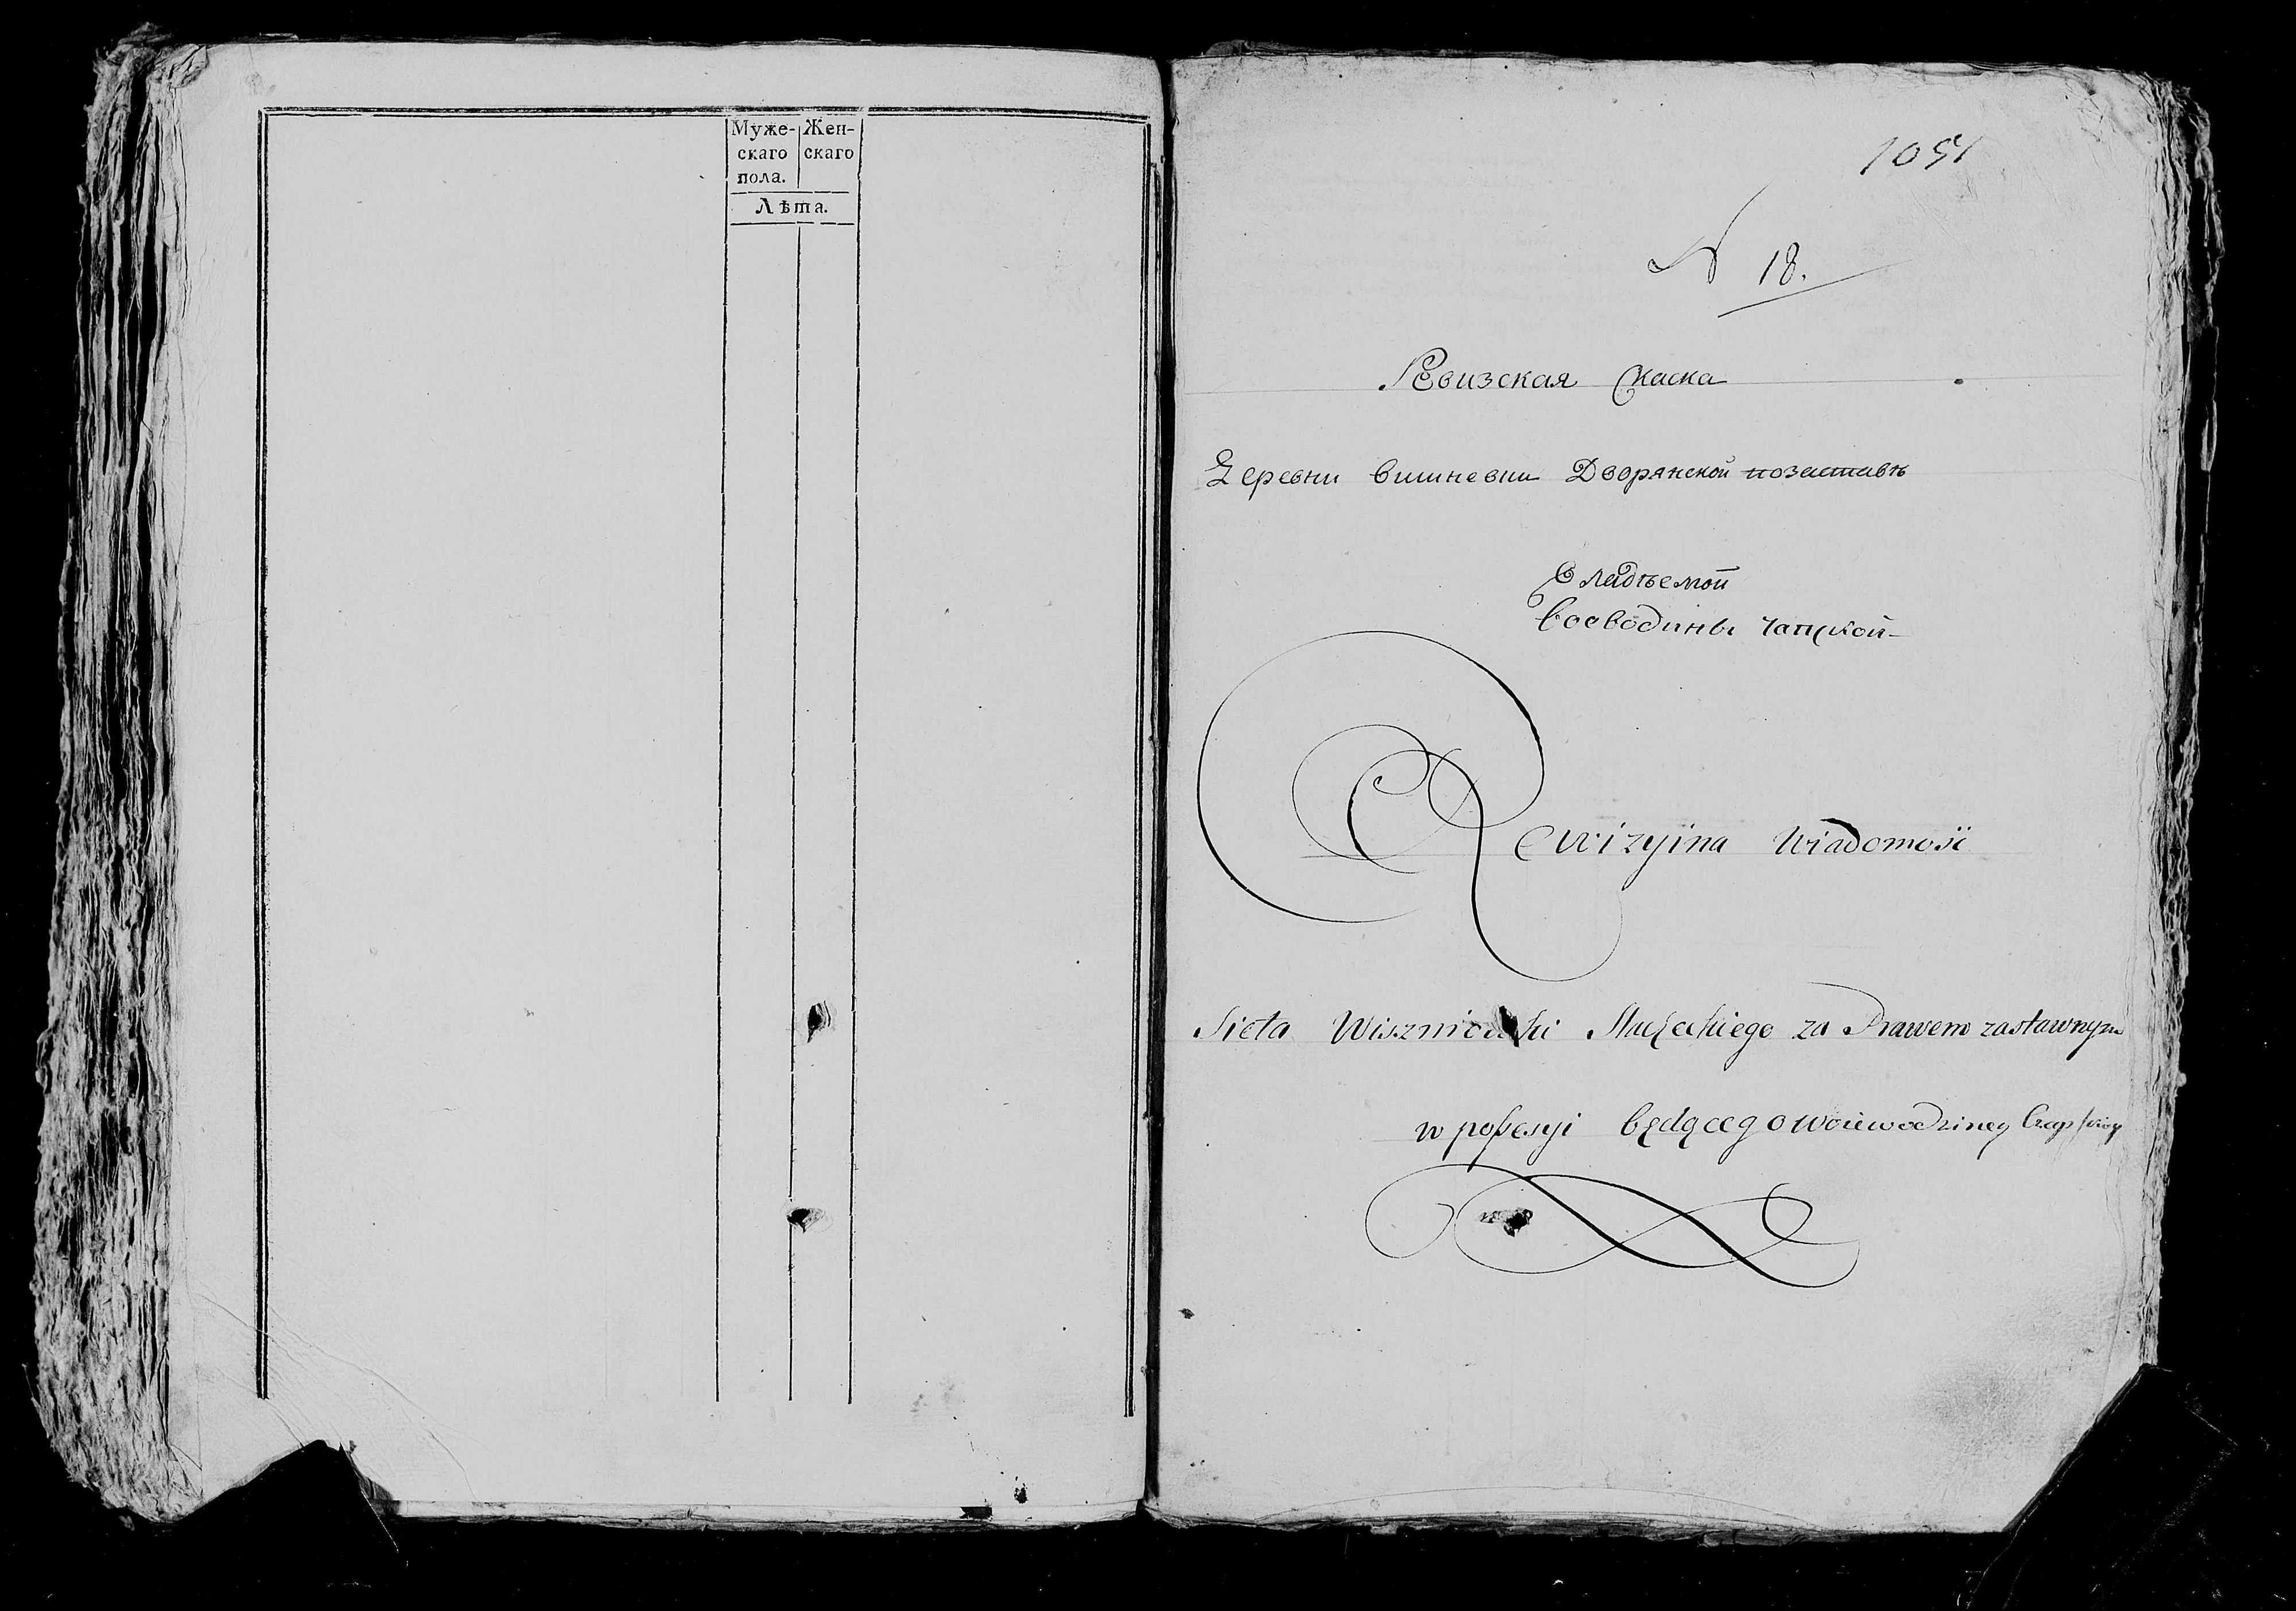 Муже- Жен-
скаго скаго
пола.
Лѣта.
1051
N 18.
Ревизская Скаска
Деревни вишневки Дворянской позаставѣ
владѣемой
воеводины чапской
Rewizyina Wiadomość
Sieła Wiszniowki Szlacheckiego za Prawem zastawnym
w possesyi będącego woiewodziney Czapskiey